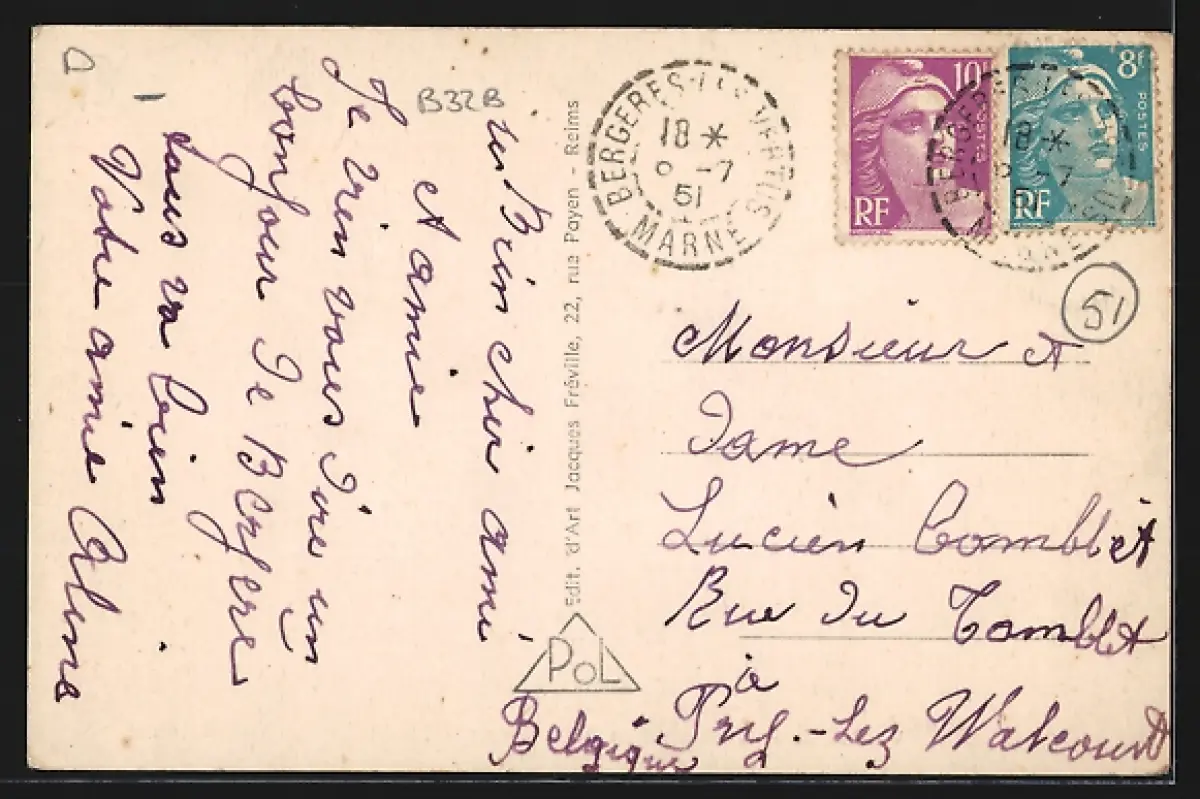 B32B
un Bin cher ami
et amie
Je vien vous dire un
bonjour de Bergere
tous va bien
Votre amie
Edit. d'Art Jacques Fréville, 22, rue Payen - Reims
POL
BERGERES-LES-VERTUS
18 *
-7
51
MARNE
10F
POSTES
RF
8F
POSTES
RF
18 *
-7
51
Monsieur et
Dame
Lucien Comblet
Rue du
à
Pry-Lez Walcourt
Belgique